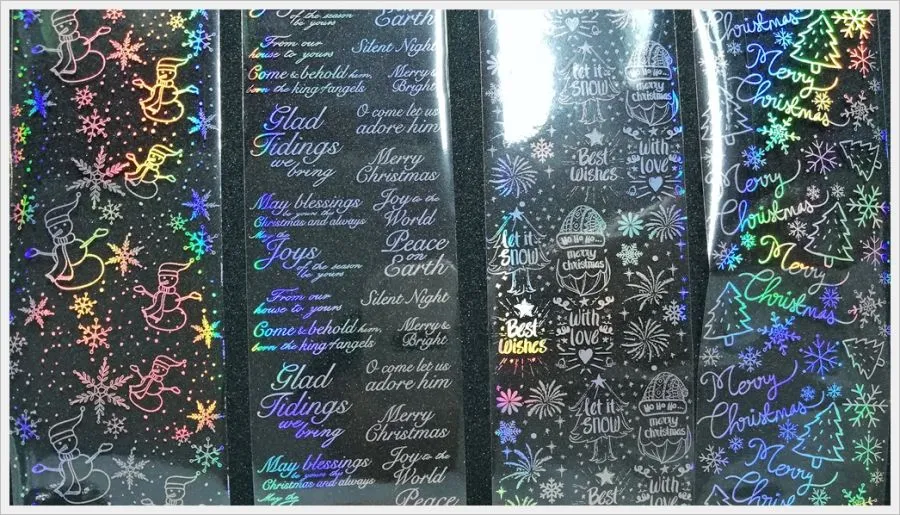 of the season
be yours
Earth
From our
house to yours
Silent Night
Come & behold him,
born the king of angels
Merry &
Bright
Glad
Tidings
we
bring
O come let us
adore him
Merry
Christmas
May blessings
be yours this
Christmas and always
May the
Joys
of the season
be yours
Joy to the
World
Peace
on
Earth
From our
house to yours
Silent Night
Come & behold him,
born the king of angels
Merry &
Bright
Glad
Tidings
we
bring
O come let us
adore him
Merry
Christmas
May blessings
be yours this
Christmas and always
May the
Joy to the
World
Peace
let it
SNOW
Ho Ho Ho...
merry
christmas
Best
Wishes
with
love
let it
SNOW
Ho Ho Ho...
merry
christmas
Best
Wishes
with
love
let it
SNOW
Ho Ho Ho...
merry
christmas
Best
with
love
Christmas
Merry
Christmas
Merry
Christmas
Merry
Christmas
Merry
Christmas
Merry
Christmas